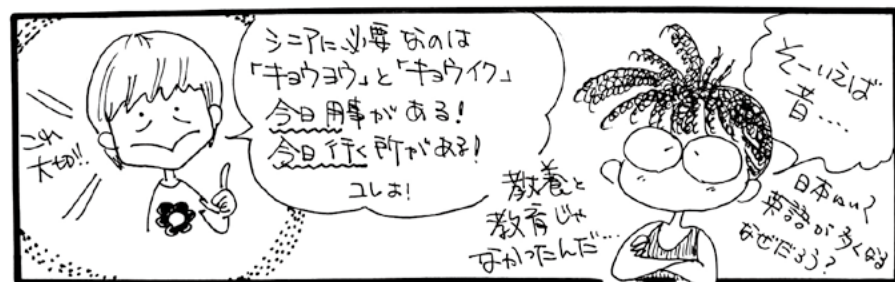 これ
大切!!
シニアに必要なのは
「キョウヨウ」と「キョウイク」
今日用事がある!
今日行く所がある!
コレよ!
教養と
教育じゃ
なかったんだ…
そーいえば
昔….
英語が多くなる
なぜだろう?